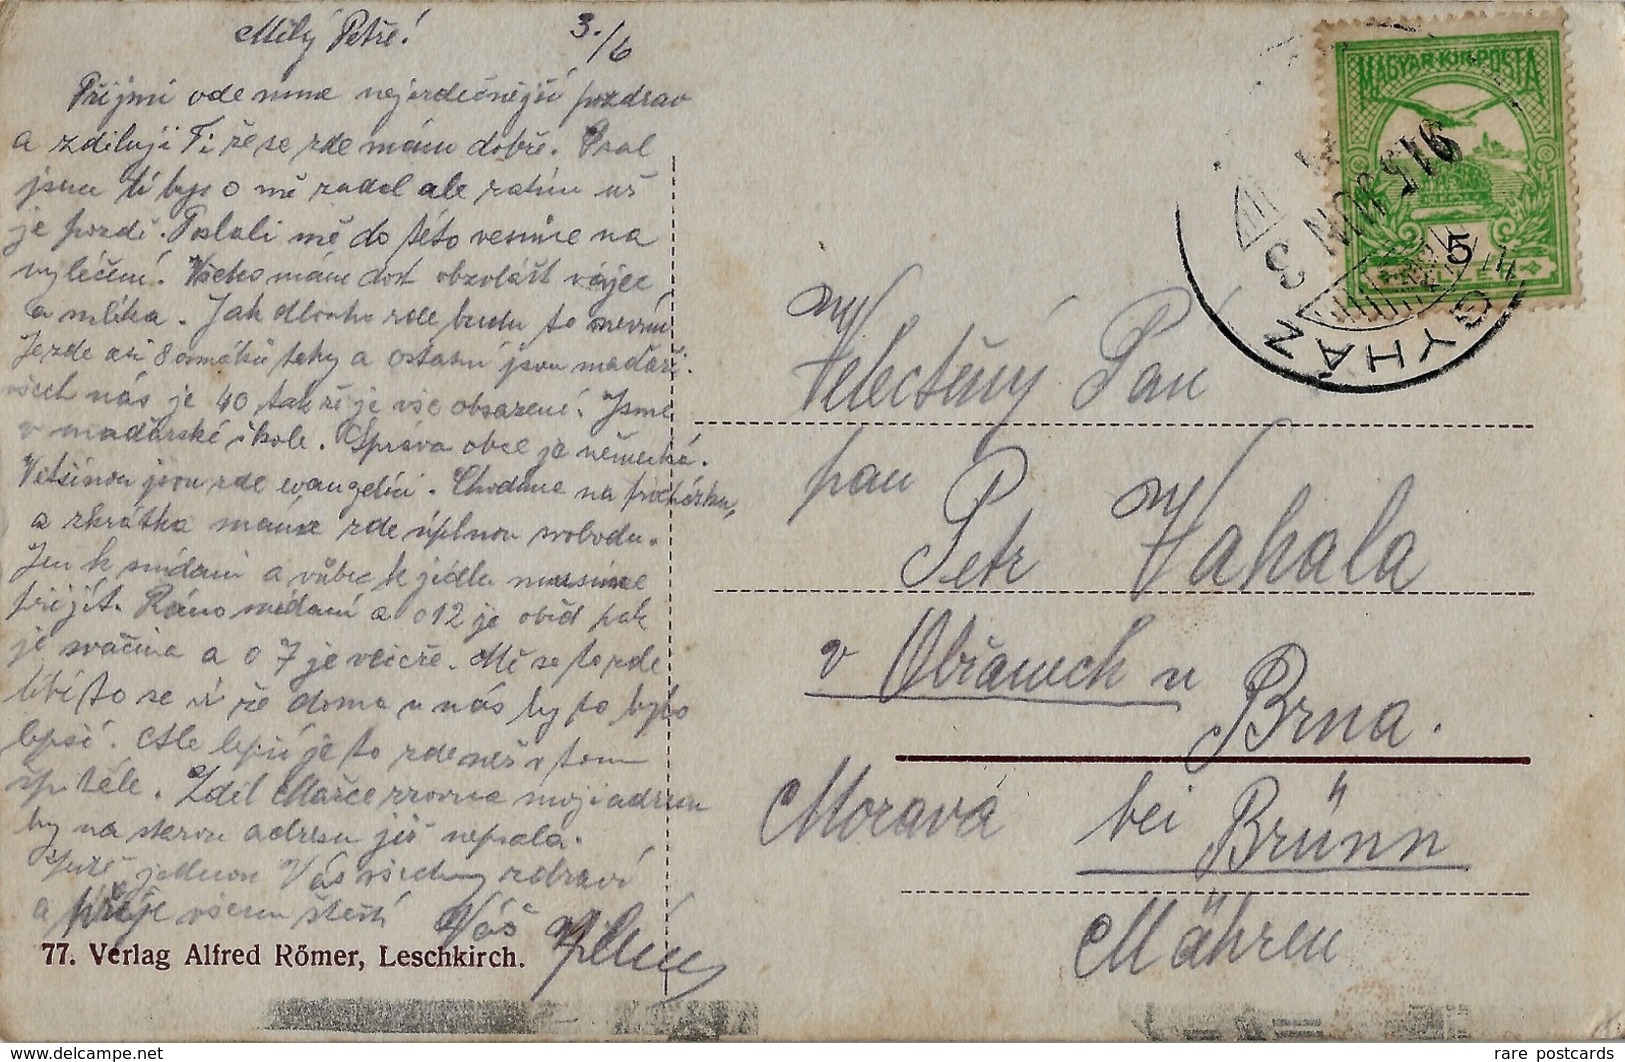 Milý Petře! 3./6
Přijmi ode mne nejsrdečnější pozdrav
a zdiluji Ti že se zde mám dobře. Psal
jsem ti bys o mě zadal ale zatím už
je pozdě. Poslali mě do této vesnice na
vyléčení. Všeho mám dost obzvlášt vajec
a mlíka. Jak dlouho zde budu to nevím
Je zde asi 8 osmáků taky a ostatní jsou maďaři.
všech nás je 40 takže je vše obsazené. Jsme
v maďarské škole. Správa obce je německá.
Vetšinou jsou zde evangelíci. Chodíme na procházku,
a zkrátka máme zde úplnou svobodu.
Jen k snídani a vůbec k jídlu musíme
přijít. Ráno snídaní a o 12 je oběd pak
je svačina a o 7 je večeře. Mě se to zde
líbí to se ví že doma u nás by to bylo
lepší. Ale lepší je to zde než v tom
špitéle. Zděl Mařce zrovna moji adresu
by na starou adresu již nepsala.
Ještě jednou Vás všechny zdraví
a přeje všem štěstí Váš
77. Verlag Alfred Rőmer, Leschkirch.
MAGYAR KIR. POSTA
5
FILLÉR
915 JUN 3
GYHÁZ
Velectěný Pán
pan
Petr Vahala
v Obřanech u
Brna.
Morava bei Brünn
Mähren
www.delcampe.net
rare postcards